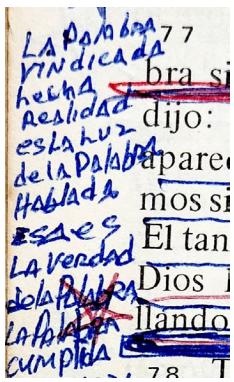 LA PALABRA
VINDICADA
hecha
REALIDAD
es LA LUZ
de la Palabra
HABLADA
ESA ES
LA VERDAD
de la PALABRA
LA PALABRA
CUMPLIDA
77
bra si
dijo:
apare
mos si
El tan
Dios
llando
78